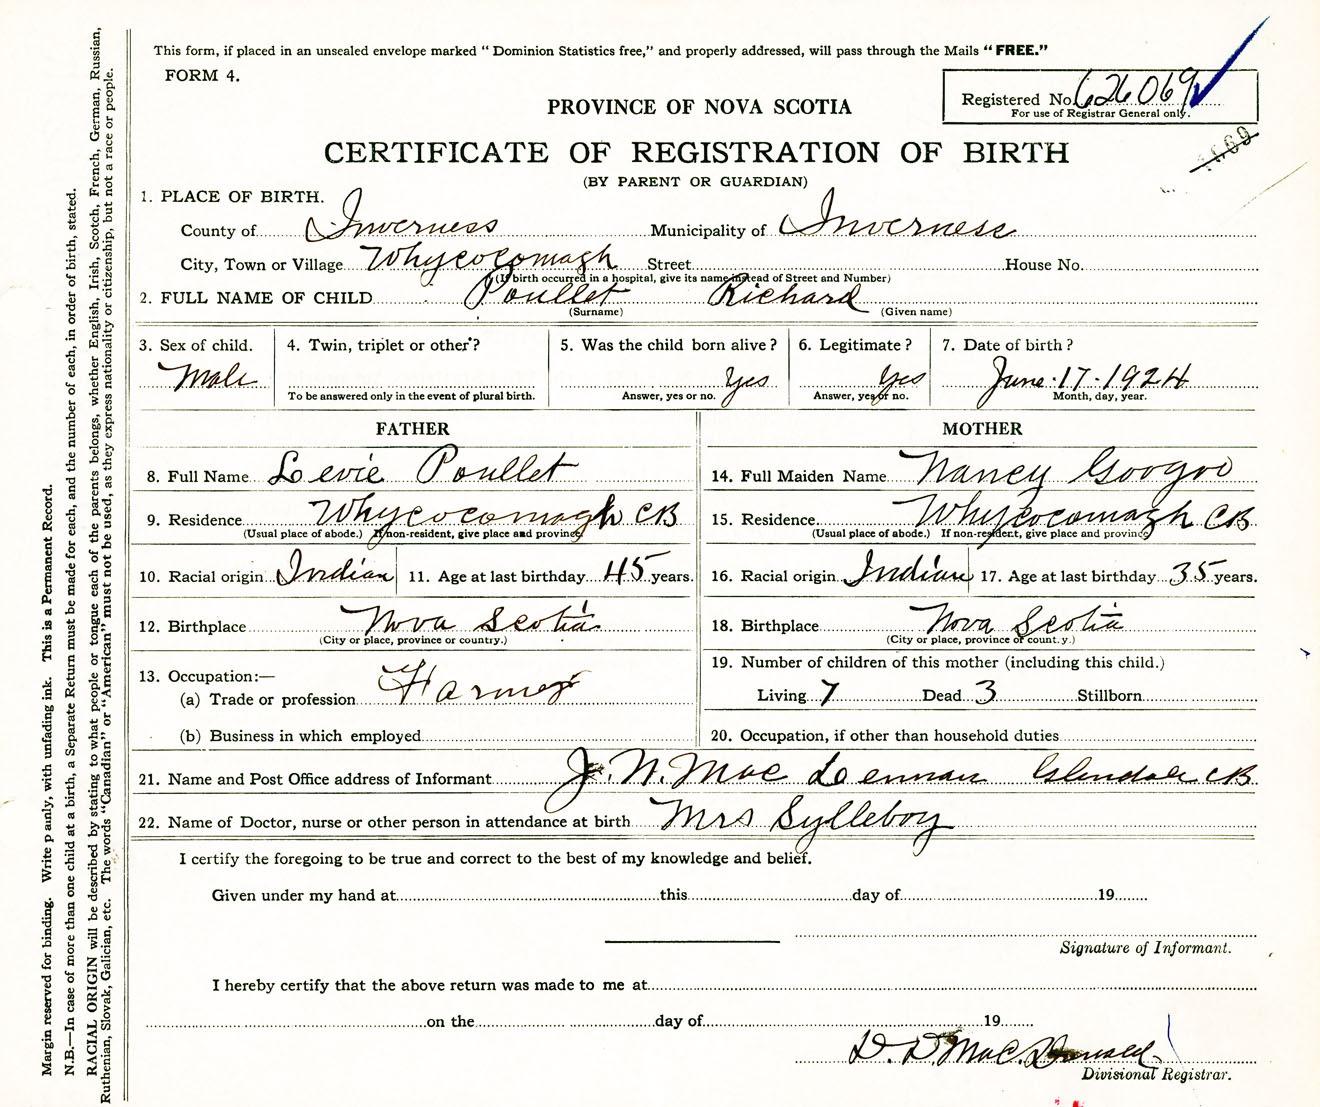 This form, if placed in an unsealed envelope marked "Dominion Statistics free," and properly addressed, will pass through the Mails "FREE."
FORM 4.
Registered No. 626069
For use of Registrar General only.
PROVINCE OF NOVA SCOTIA
CERTIFICATE OF REGISTRATION OF BIRTH
(BY PARENT OR GUARDIAN)
1. PLACE OF BIRTH.
County of Inverness Municipality of Inverness
City, Town or Village Whycocomagh Street House No.
(If birth occurred in a hospital, give its name instead of Street and Number)
2. FULL NAME OF CHILD Poullet Richard
(Surname) (Given name)
3. Sex of child. 4. Twin, triplet or other? 5. Was the child born alive? 6. Legitimate? 7. Date of birth?
Male Yes Yes June 17-1924
To be answered only in the event of plural birth. Answer, yes or no. Answer, yes or no. Month, day, year.
FATHER MOTHER
8. Full Name Levie Poullet 14. Full Maiden Name Nancy Googoo
9. Residence Whycocomagh CB 15. Residence Whycocomagh CB
(Usual place of abode.) If non-resident, give place and province. (Usual place of abode.) If non-resident, give place and province
10. Racial origin Indian 11. Age at last birthday 45 years. 16. Racial origin Indian 17. Age at last birthday 35 years.
12. Birthplace Nova Scotia 18. Birthplace Nova Scotia
(City or place, province or country.) (City or place, province or count.y.)
13. Occupation:— 19. Number of children of this mother (including this child.)
(a) Trade or profession Farmer Living 7 Dead 3 Stillborn
(b) Business in which employed 20. Occupation, if other than household duties
21. Name and Post Office address of Informant J. N. MacLennan Glendale CB
22. Name of Doctor, nurse or other person in attendance at birth Mrs Sylleboy
I certify the foregoing to be true and correct to the best of my knowledge and belief.
Given under my hand at this day of 19
Signature of Informant.
I hereby certify that the above return was made to me at
on the day of 19
D. D. MacDonald
Divisional Registrar.
Margin reserved for binding. Write p ainly, with unfading ink. This is a Permanent Record.
N.B.—In case of more than one child at a birth, a Separate Return must be made for each, and the number of each, in order of birth, stated.
RACIAL ORIGIN will be described by stating to what people or tongue each of the parents belongs, whether English, Irish, Scotch, French, German, Russian,
Ruthenian, Slovak, Galician, etc. The words "Canadian" or "American" must not be used, as they express nationality or citizenship, but not a race or people.